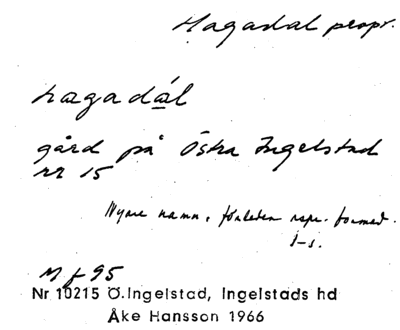 Hagadal propr.
hagadál
gård på Östra Ingelstad
nr 15
Nyare namn, förleden repr. formed.
M f 95
Nr 10215 Ö.Ingelstad, Ingelstads hd
Åke Hansson 1966